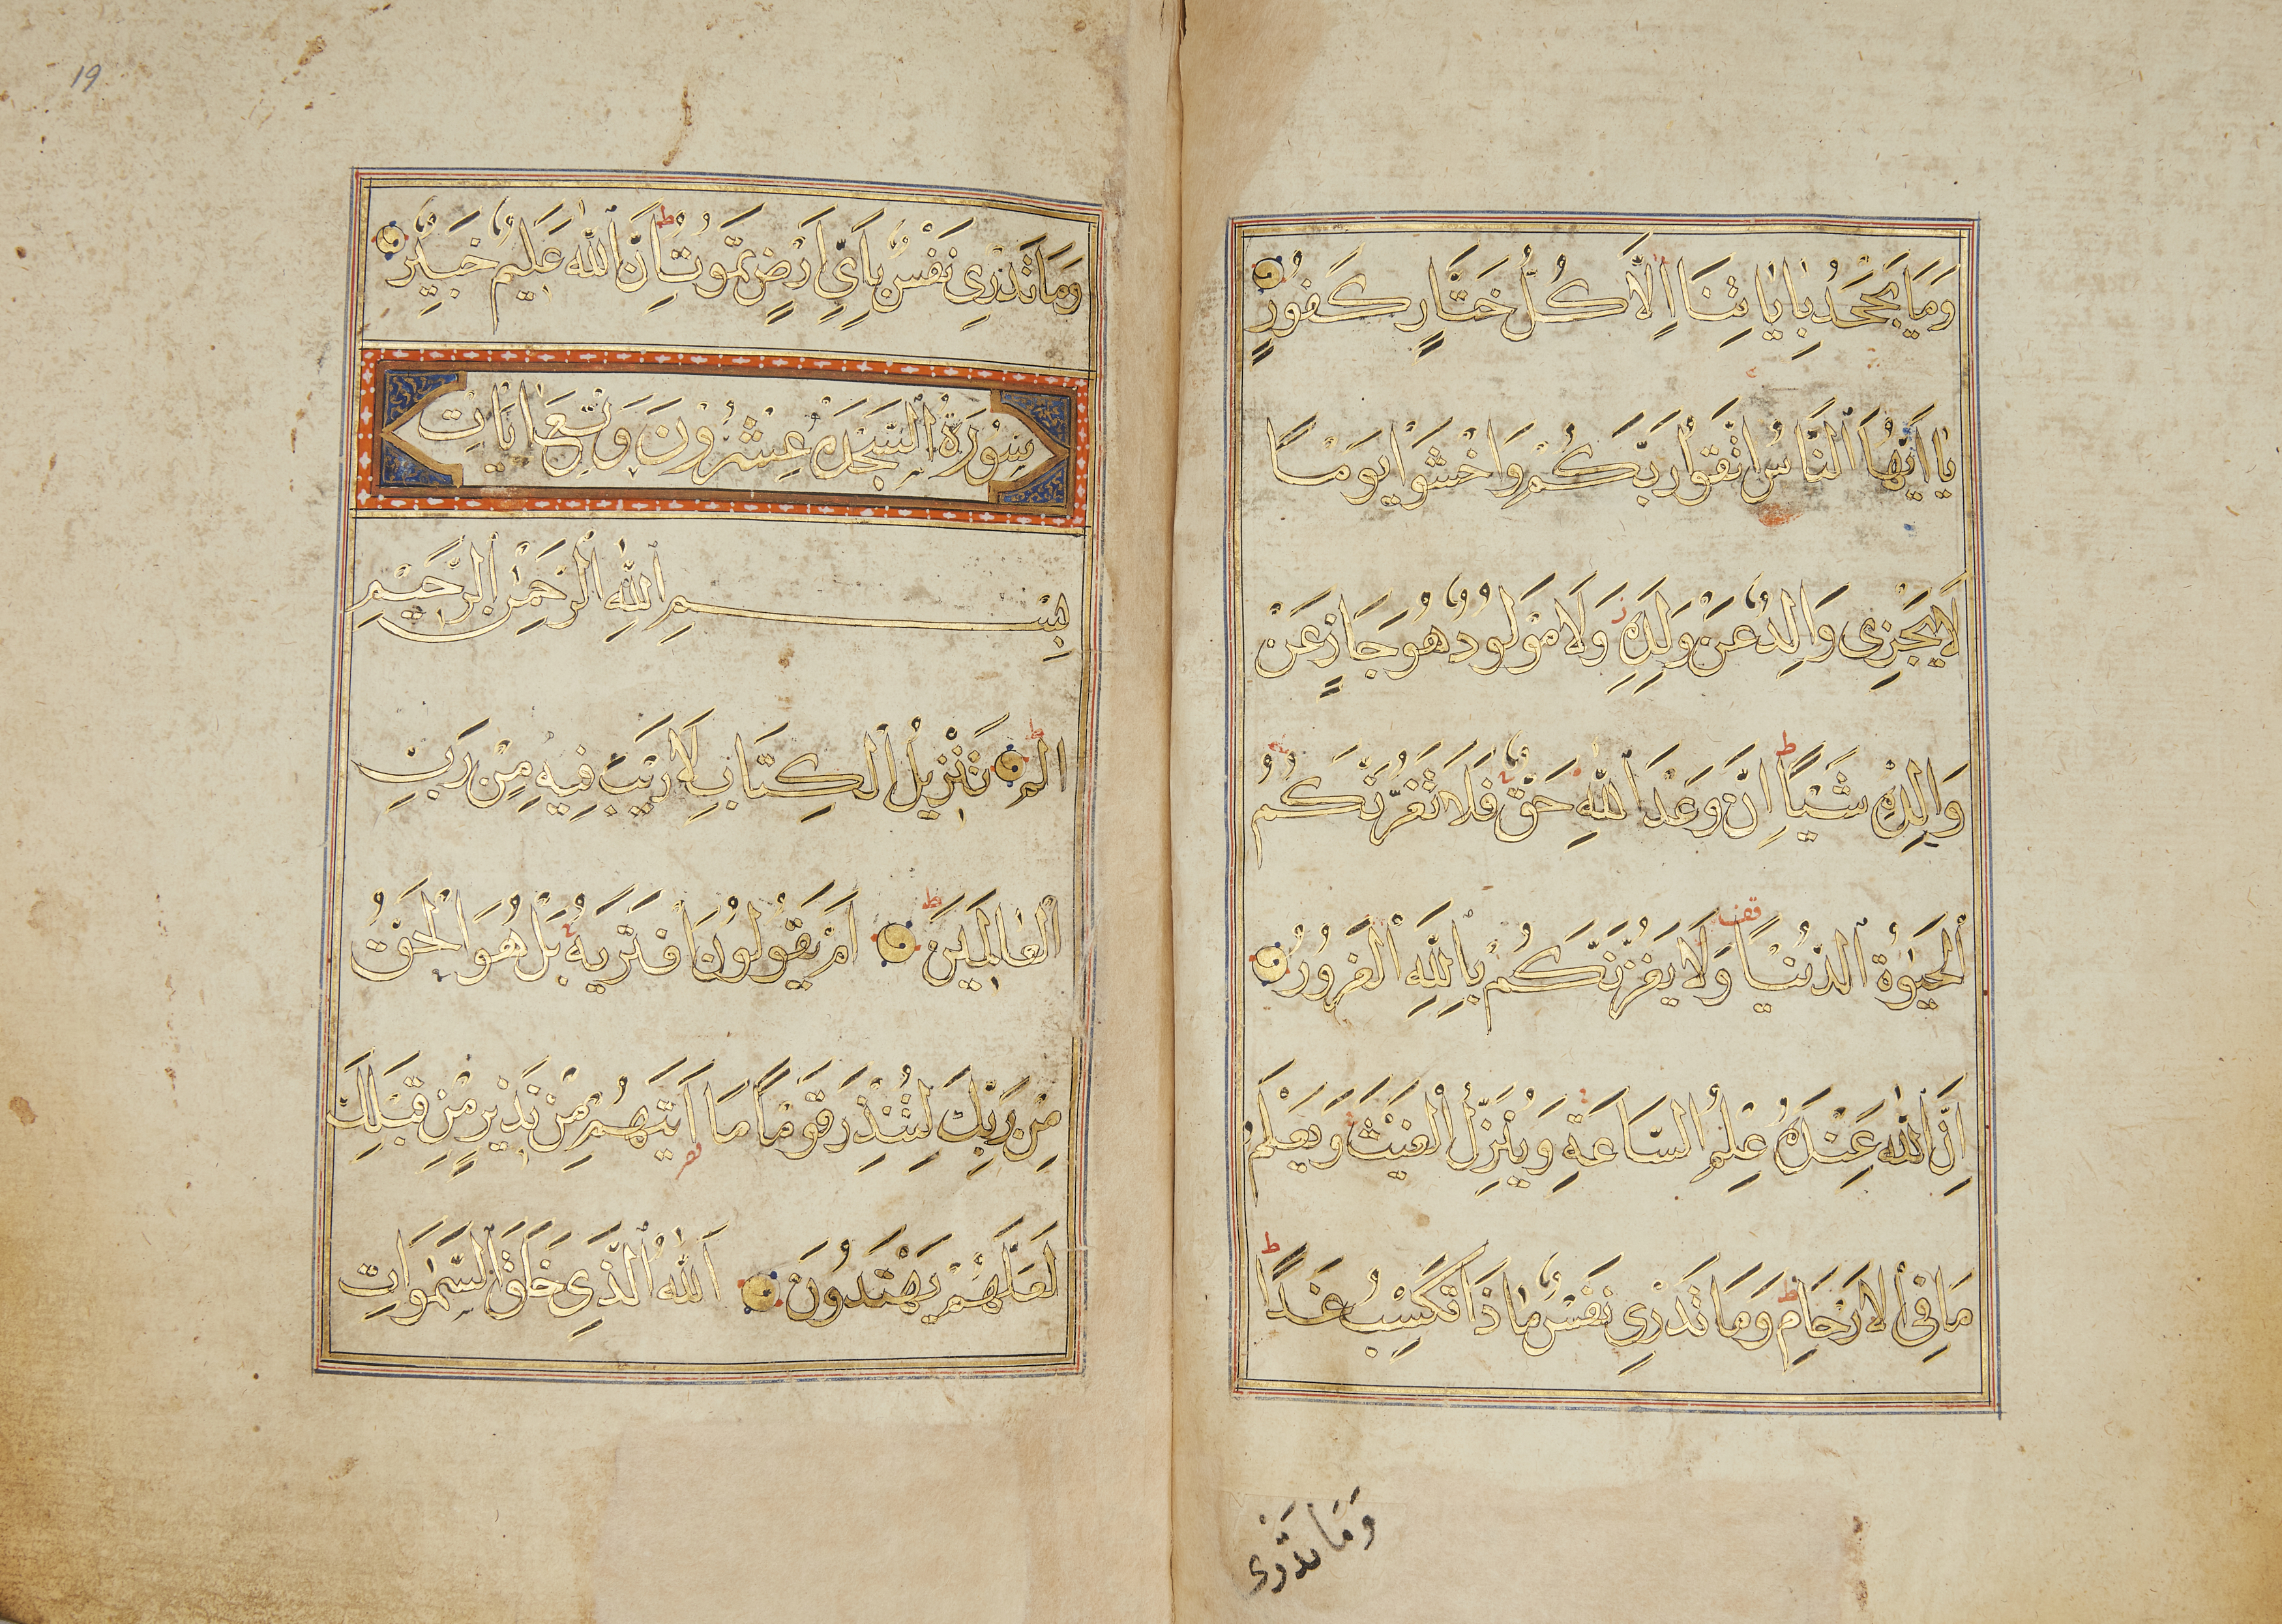 وَمَا يَجْحَدُ بِاٰيَاتِنَا اِلَّا كُلُّ خَتَّارٍ كَفُورٍ
يَا اَيُّهَا ٱلنَّاسُ اتَّقُوا رَبَّكُمْ وَاخْشَوْا يَوْمًا
لَا يَجْزِى وَالِدٌ عَنْ وَلَدِهِ وَلَا مَوْلُودٌ هُوَ جَازٍ عَنْ
وَالِدِهِ شَيْـًٔا اِنَّ وَعْدَ ٱللّٰهِ حَقٌّ فَلَا تَغُرَّنَّكُمُ
ٱلْحَيٰوةُ ٱلدُّنْيَا وَلَا يَغُرَّنَّكُمْ بِاللّٰهِ ٱلْغَرُورُ
اِنَّ ٱللّٰهَ عِنْدَهُ عِلْمُ السَّاعَةِ وَيُنَزِّلُ ٱلْغَيْثَ وَيَعْلَمُ
مَا فِى ٱلْاَرْحَامِ وَمَا تَدْرِى نَفْسٌ مَاذَا تَكْسِبُ غَدًا
وَمَا تَدْرِى
19
وَمَا تَدْرِى نَفْسٌ بِاَىِّ اَرْضٍ تَمُوتُ اِنَّ ٱللّٰهَ عَلِيمٌ خَبِيرٌ
سُورَةُ ٱلسَّجْدَه عِشْرُونَ وَتِسْعُ اٰيَاتٍ
بِسْمِ ٱللّٰهِ ٱلرَّحْمٰنِ ٱلرَّحِيمِ
الم تَنْزِيلُ ٱلْكِتَابِ لَا رَيْبَ فِيهِ مِنْ رَبِّ
ٱلْعَالَمِينَ اَمْ يَقُولُونَ افْتَرَيهُ بَلْ هُوَ ٱلْحَقُّ
مِنْ رَبِّكَ لِتُنْذِرَ قَوْمًا مَا اَتَيهُمْ مِنْ نَذِيرٍ مِنْ قَبْلِكَ
لَعَلَّهُمْ يَهْتَدُونَ اَللّٰهُ ٱلَّذِى خَلَقَ ٱلسَّمٰوَاتِ